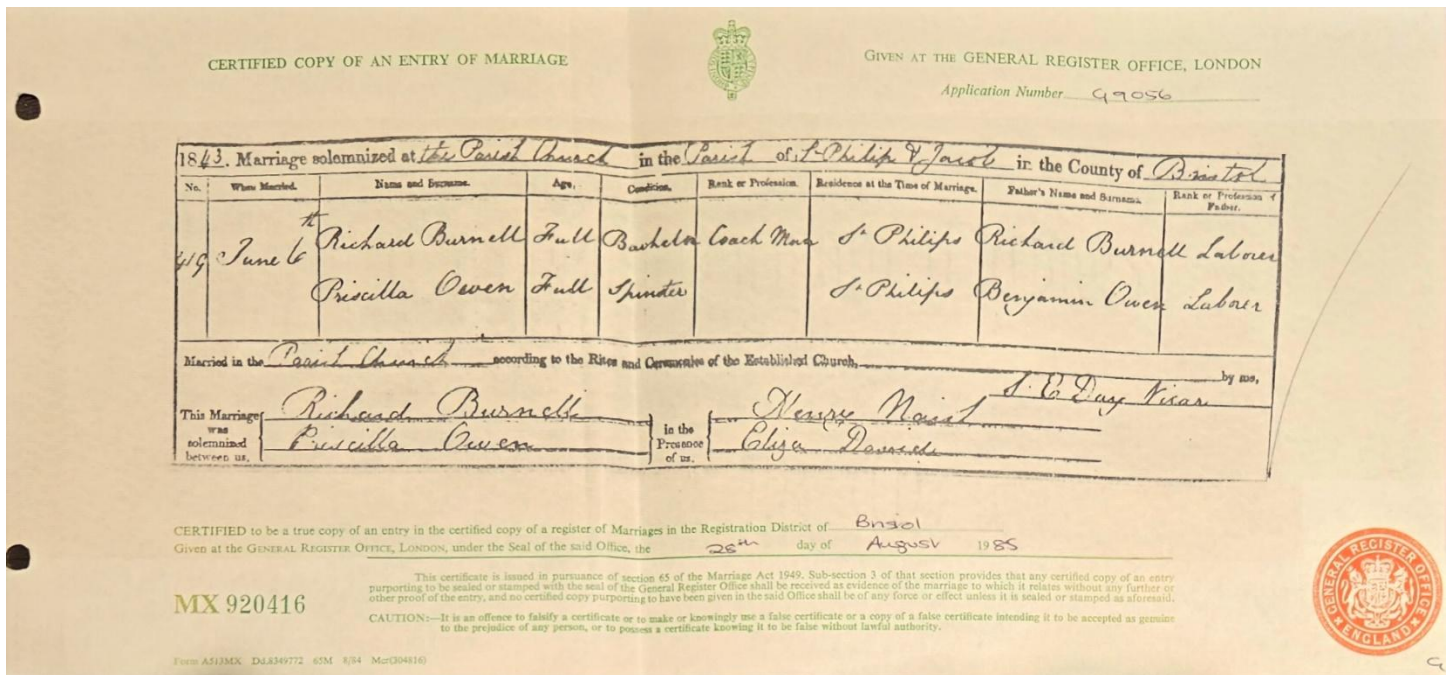 CERTIFIED COPY OF AN ENTRY OF MARRIAGE
GIVEN AT THE GENERAL REGISTER OFFICE, LONDON
Application Number G9056
1843. Marriage solemnized at the Parish Church in the Parish of St Philip & Jacob in the County of Bristol
No. When Married. Name and Surname. Age. Condition. Rank or Profession. Residence at the Time of Marriage. Father's Name and Surname. Rank or Profession of Father.
419 June 6th Richard Burnell Full Bachelor Coach Man St Philips Richard Burnell Laborer
Priscilla Owen Full Spinster St Philips Benjamin Owen Laborer
Married in the Parish Church according to the Rites and Ceremonies of the Established Church, by me,
S. E. Day Vicar
This Marriage was solemnized between us, Richard Burnell in the Presence of us, Henry Naish
Priscilla Owen Eliza
CERTIFIED to be a true copy of an entry in the certified copy of a register of Marriages in the Registration District of Bristol
Given at the GENERAL REGISTER OFFICE, LONDON, under the Seal of the said Office, the 28th day of August 1985
This certificate is issued in pursuance of section 65 of the Marriage Act 1949. Sub-section 3 of that section provides that any certified copy of an entry
purporting to be sealed or stamped with the seal of the General Register Office shall be received as evidence of the marriage to which it relates without any further or
other proof of the entry, and no certified copy purporting to have been given in the said Office shall be of any force or effect unless it is sealed or stamped as aforesaid.
MX 920416
CAUTION:—It is an offence to falsify a certificate or to make or knowingly use a false certificate or a copy of a false certificate intending it to be accepted as genuine
to the prejudice of any person, or to possess a certificate knowing it to be false without lawful authority.
GENERAL REGISTER OFFICE
ENGLAND
Form A513MX Dd.8349772 65M 8/84 Mcr(304816)